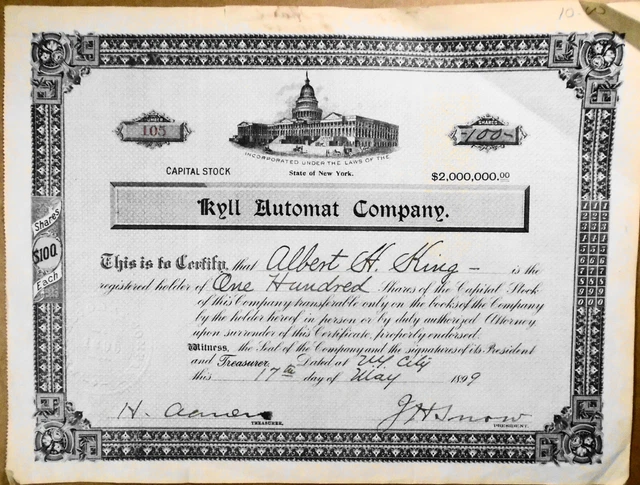 NUMBER
105
SHARES
-100-
INCORPORATED UNDER THE LAWS OF THE
State of New York.
CAPITAL STOCK
$2,000,000.00
Kyll Automat Company.
Shares
$100
Each
This is to Certify, that Albert H. King - is the
registered holder of One Hundred Shares of the Capital Stock
of this Company transferable only on the books of the Company
by the holder hereof in person or by duly authorized Attorney
upon surrender of this Certificate, properly endorsed.
Witness, the Seal of the Company and the signatures of its President
and Treasurer. Dated at N.Y. City
this 17th day of May 1899
H.
TREASURER.
J H Snow
PRESIDENT.